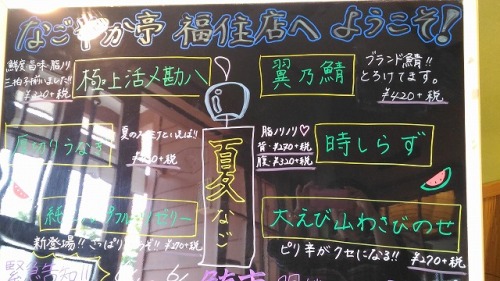 なごやか亭 福住店へ ようこそ!
鮮度 旨味 脂ノリ
三拍子揃いました!!
¥220+税
極上活〆勘八
翼乃鯖
ブランド鯖!!
とろけてます。
¥420+税
厚切りうなぎ
+税
脂ノリノリ♡
背・¥270+税
腹・¥320+税
時しらず
夏
なご
ゼリー
新登場!! さっぱり ¥270+税
大えび山わさびのせ
ピリ辛がクセになる!! ¥270+税
緊急告知!!